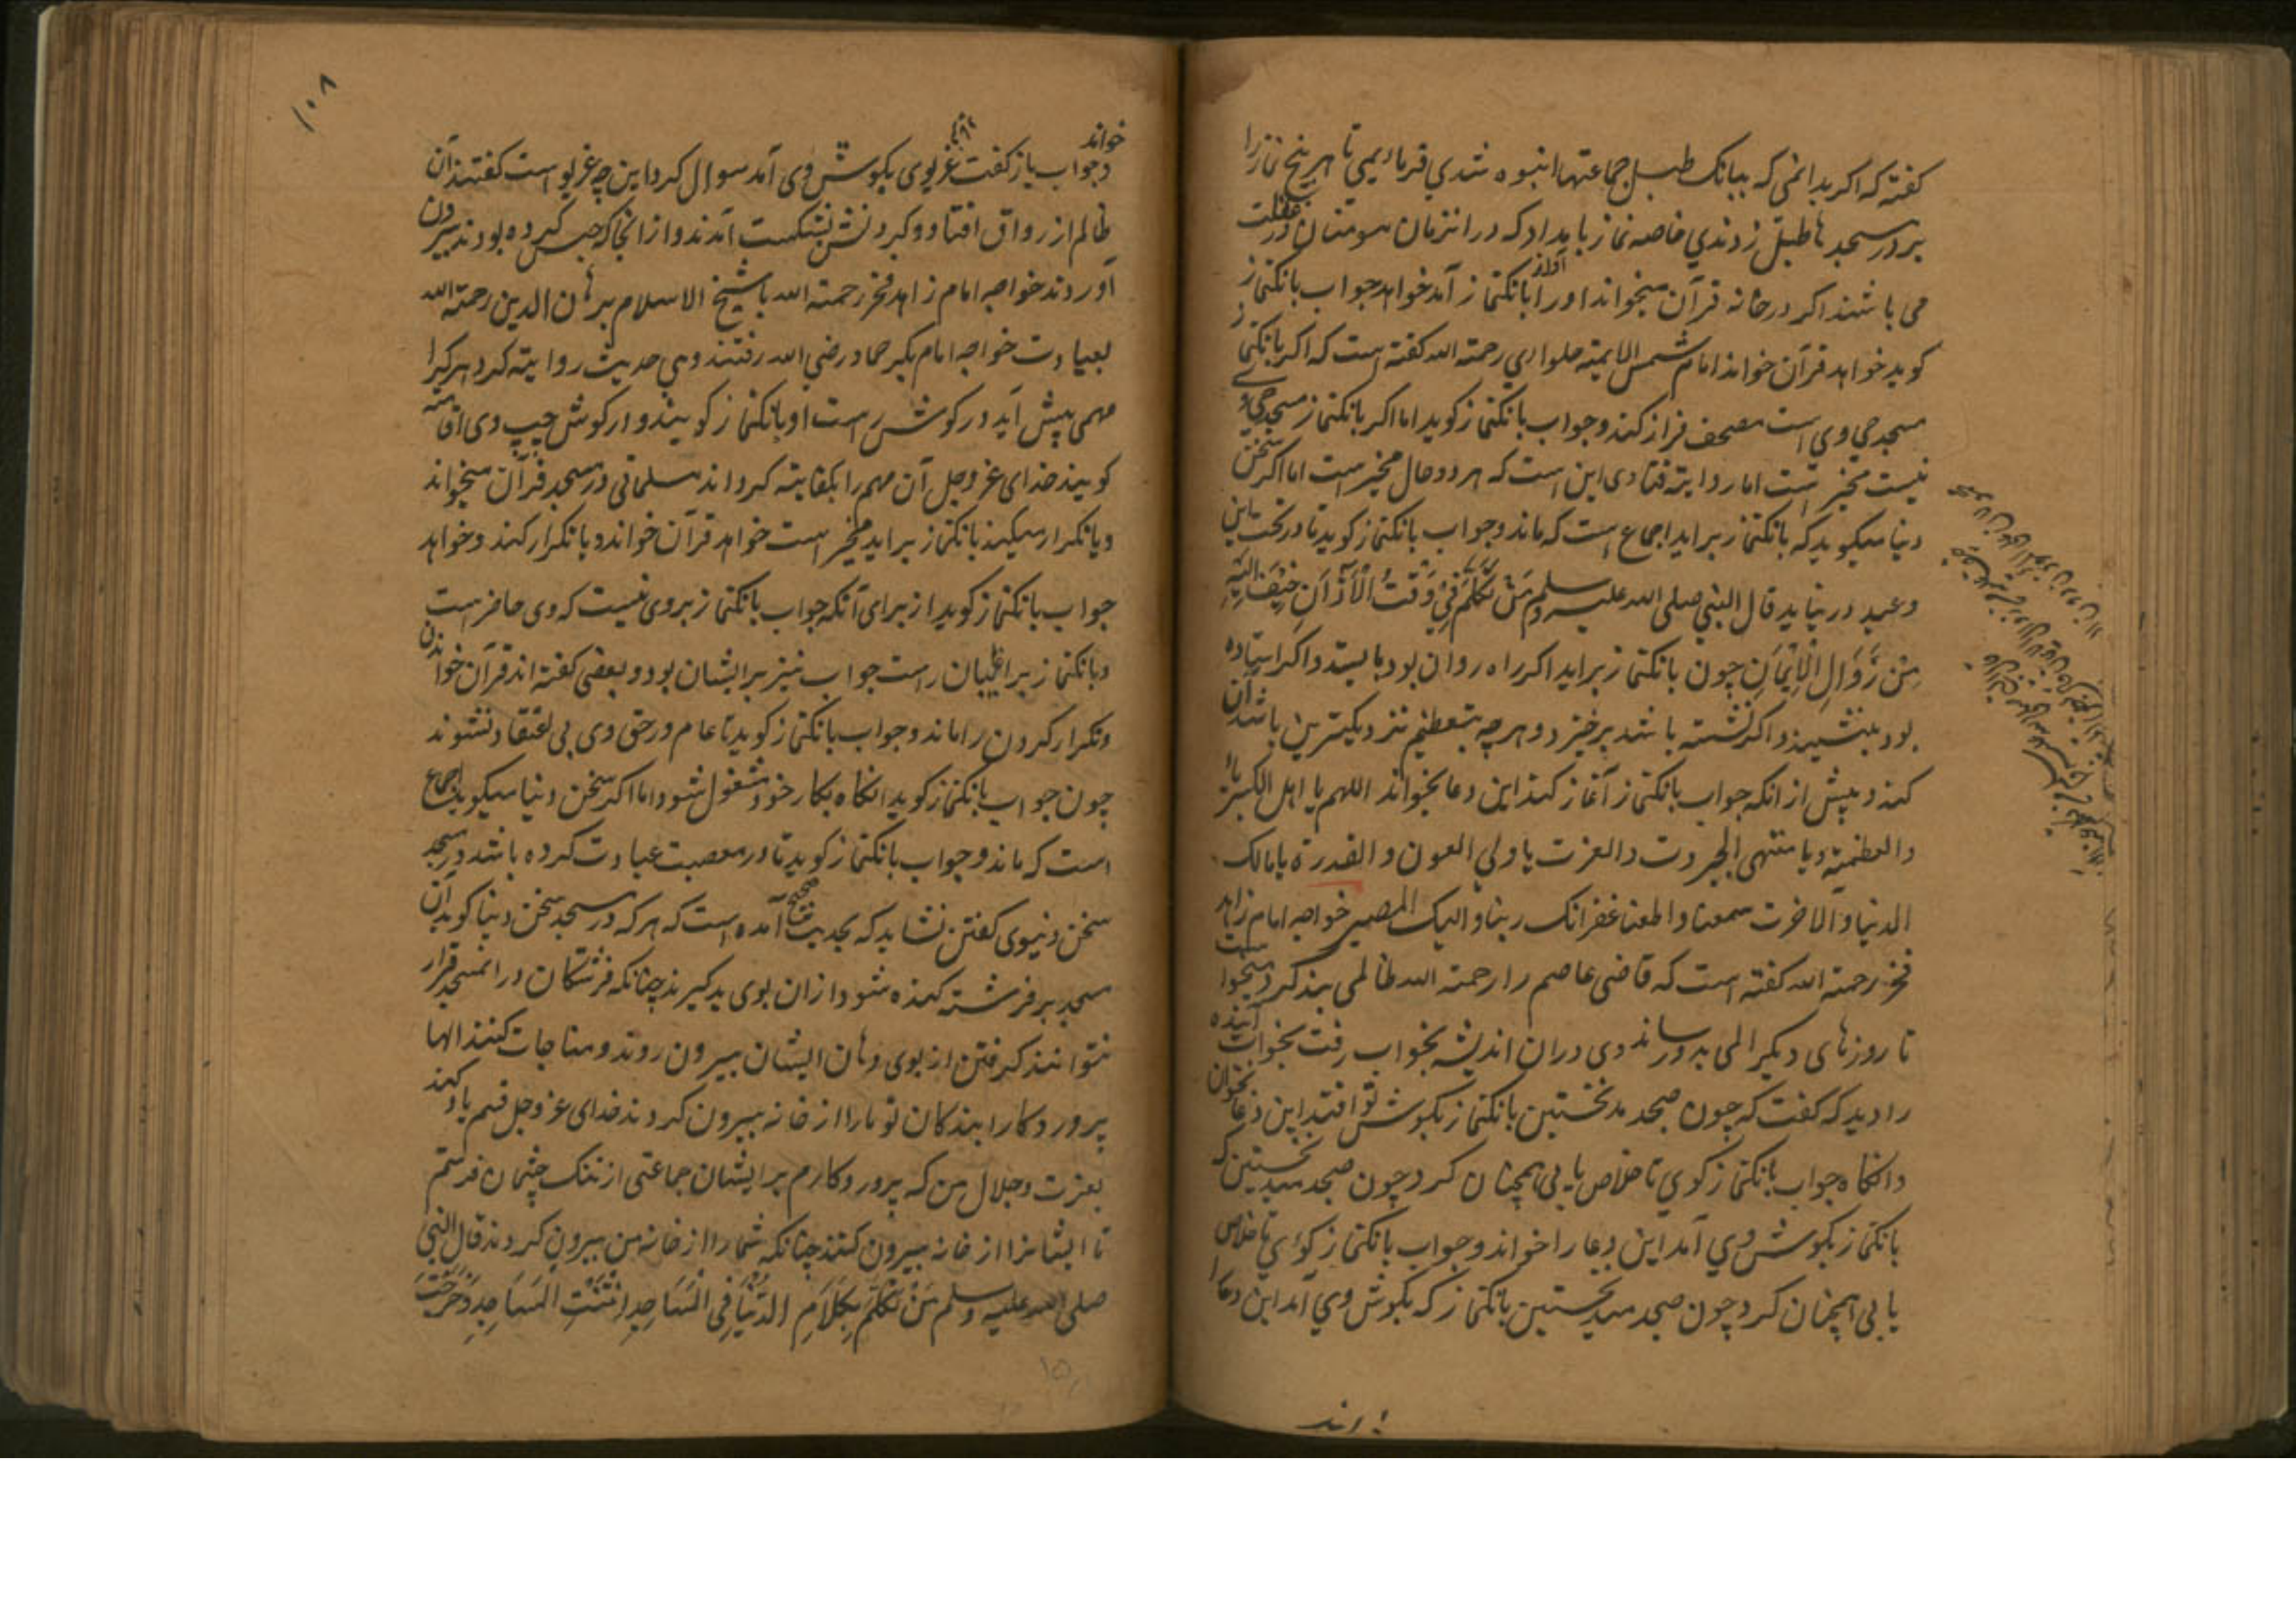 کفته که اکر بدانمی که ببانک طبل جماعتها انبوه شدی فرماییمی تا هر پنج نماز را
بر در مسجدها طبل زدندی خاصه نماز بامداد که در انزمان مومنان در غفلت
می باشند اکر در خانه قرآن میخواند او را آواز بانکنماز آمد خواهد جواب بانکنماز
کوید خواهد قرآن خواند امام شمس الایمه حلوایی رحمة الله کفته است که اکر بانکنماز
مسجد حی وی است مصحف فراز کند و جواب بانکنماز کوید اما اکر بانکنماز مسجد حی
نیست مخیر است اما روایته فتاوی این است که هر دو حال مخیر است اما اکر سخن
دنیا میکوید که بانکنماز براید اجماع است که ماند و جواب بانکنماز کوید تا در تحت این
وعید در نیاید قال النبی صلی الله علیه وسلم مَنْ تَکَلَّمَ فِی وَقْتِ الْأَذَانِ خِیفَ الیَهِ
مِنْ زَوَالِ الْاِیْمَانِ چون بانکنماز براید اکر راه روان بود بایستد و اکر ایستاده
بود بنشیند و اکر نشسته باشد برخیزد و هر چه بتعظیم نزدیکترین باشد آن
کند و پیش از انکه جواب بانکنماز آغاز کند این دعا بخواند اللهم یا اهل الکبریاء
والعظمة ویا منتهی الجبروت والعزت یا ولی العون والقدرة یا مالک
الدنیا والآخرت سمعنا واطعنا غفرانک ربنا والیک المصیر خواجه امام زاهد
فخر رحمة الله کفته است که قاضی عاصم را رحمة الله ظالمی بند کرد میخواست
تا روزهای دیکر المی بدو رساند وی دران اندیشه بخواب رفت بخواب آینده
را دید که کفت که چون صبح دمد نخستین بانکنماز بکوش تو افتد این دعا بخوان
وانکاه جواب بانکنماز کوی تا خلاص یابی همچنان کرد چون صبح دمید نخستین که
بانکنماز بکوش وی آمد این دعا را خواند و جواب بانکنماز کوی تا خلاص
یابی همچنان کرد چون صبح دمید نخستین بانکنماز که بکوش وی آمد این دعا را
خواند
وجواب باز کفت غریوی بکوش وی آمد سوال کرد این چه غریو است کفتند آن
ظالم از رواق افتاد و کردنش بشکست آمدند و از انجا که حبس کرده بودند بیرون
آوردند خواجه امام زاهد فخر رحمة الله با شیخ الاسلام برهان الدین رحمة الله
بعیادت خواجه امام بکر حماد رضی الله رفتند وی حدیث روایته کرد هر کرا
مهمی پیش آید در کوش راست او بانکنماز کویند و در کوش چپ وی اقامة
کویند خدای عز وجل آن مهم را بکفایته کرداند مسلمانی در مسجد قرآن میخواند
ویا تکرار میکند بانکنماز براید مخیر است خواهد قرآن خواند و یا تکرار کند و خواهد
جواب بانکنماز کوید از برای آنکه جواب بانکنماز بر وی نیست که وی حاضر است
وبانکنماز بر غایبان راست جواب نیز بر ایشان بود و بعضی کفته اند قرآن خواندن
وتکرار کردن را ماند و جواب بانکنماز کوید تا عام در حق وی بی اعتقاد نشوند
چون جواب بانکنماز کوید انکاه بکار خود مشغول شود اما اکر سخن دنیا میکوید اجماع
است که ماند و جواب بانکنماز کوید تا در معصیت عبادت کرده باشد در مسجد
سخن دنیوی کفتن نشاید که بحدیث صحیح آمده است که هر که در مسجد سخن دنیا کوید آن
مسجد بر فرشته کنده شود و ازان بوی بد کیرند چنانکه فرشتکان در ان مسجد قرار
نتوانند کرفتن از بوی دهان ایشان بیرون روند و مناجات کنند الها
پروردکارا بندکان تو ما را از خانه بیرون کردند خدای عز وجل قسم یاد کند
بعزت و جلال من که پروردکارم بر ایشان جماعتی از تنک چشمان فرستم
تا ایشانرا از خانه بیرون کنند چنانکه شما را از خانه من بیرون کردند قال النبی
صلی الله علیه وسلم مَنْ تَکَلَّمَ بِکَلَامِ الدُّنْیَا فِی الْمَسَاجِدِ انْتَنَتِ الْمَسَاجِدِ وَخَرَجَتْ
۱۰۸
۱۵